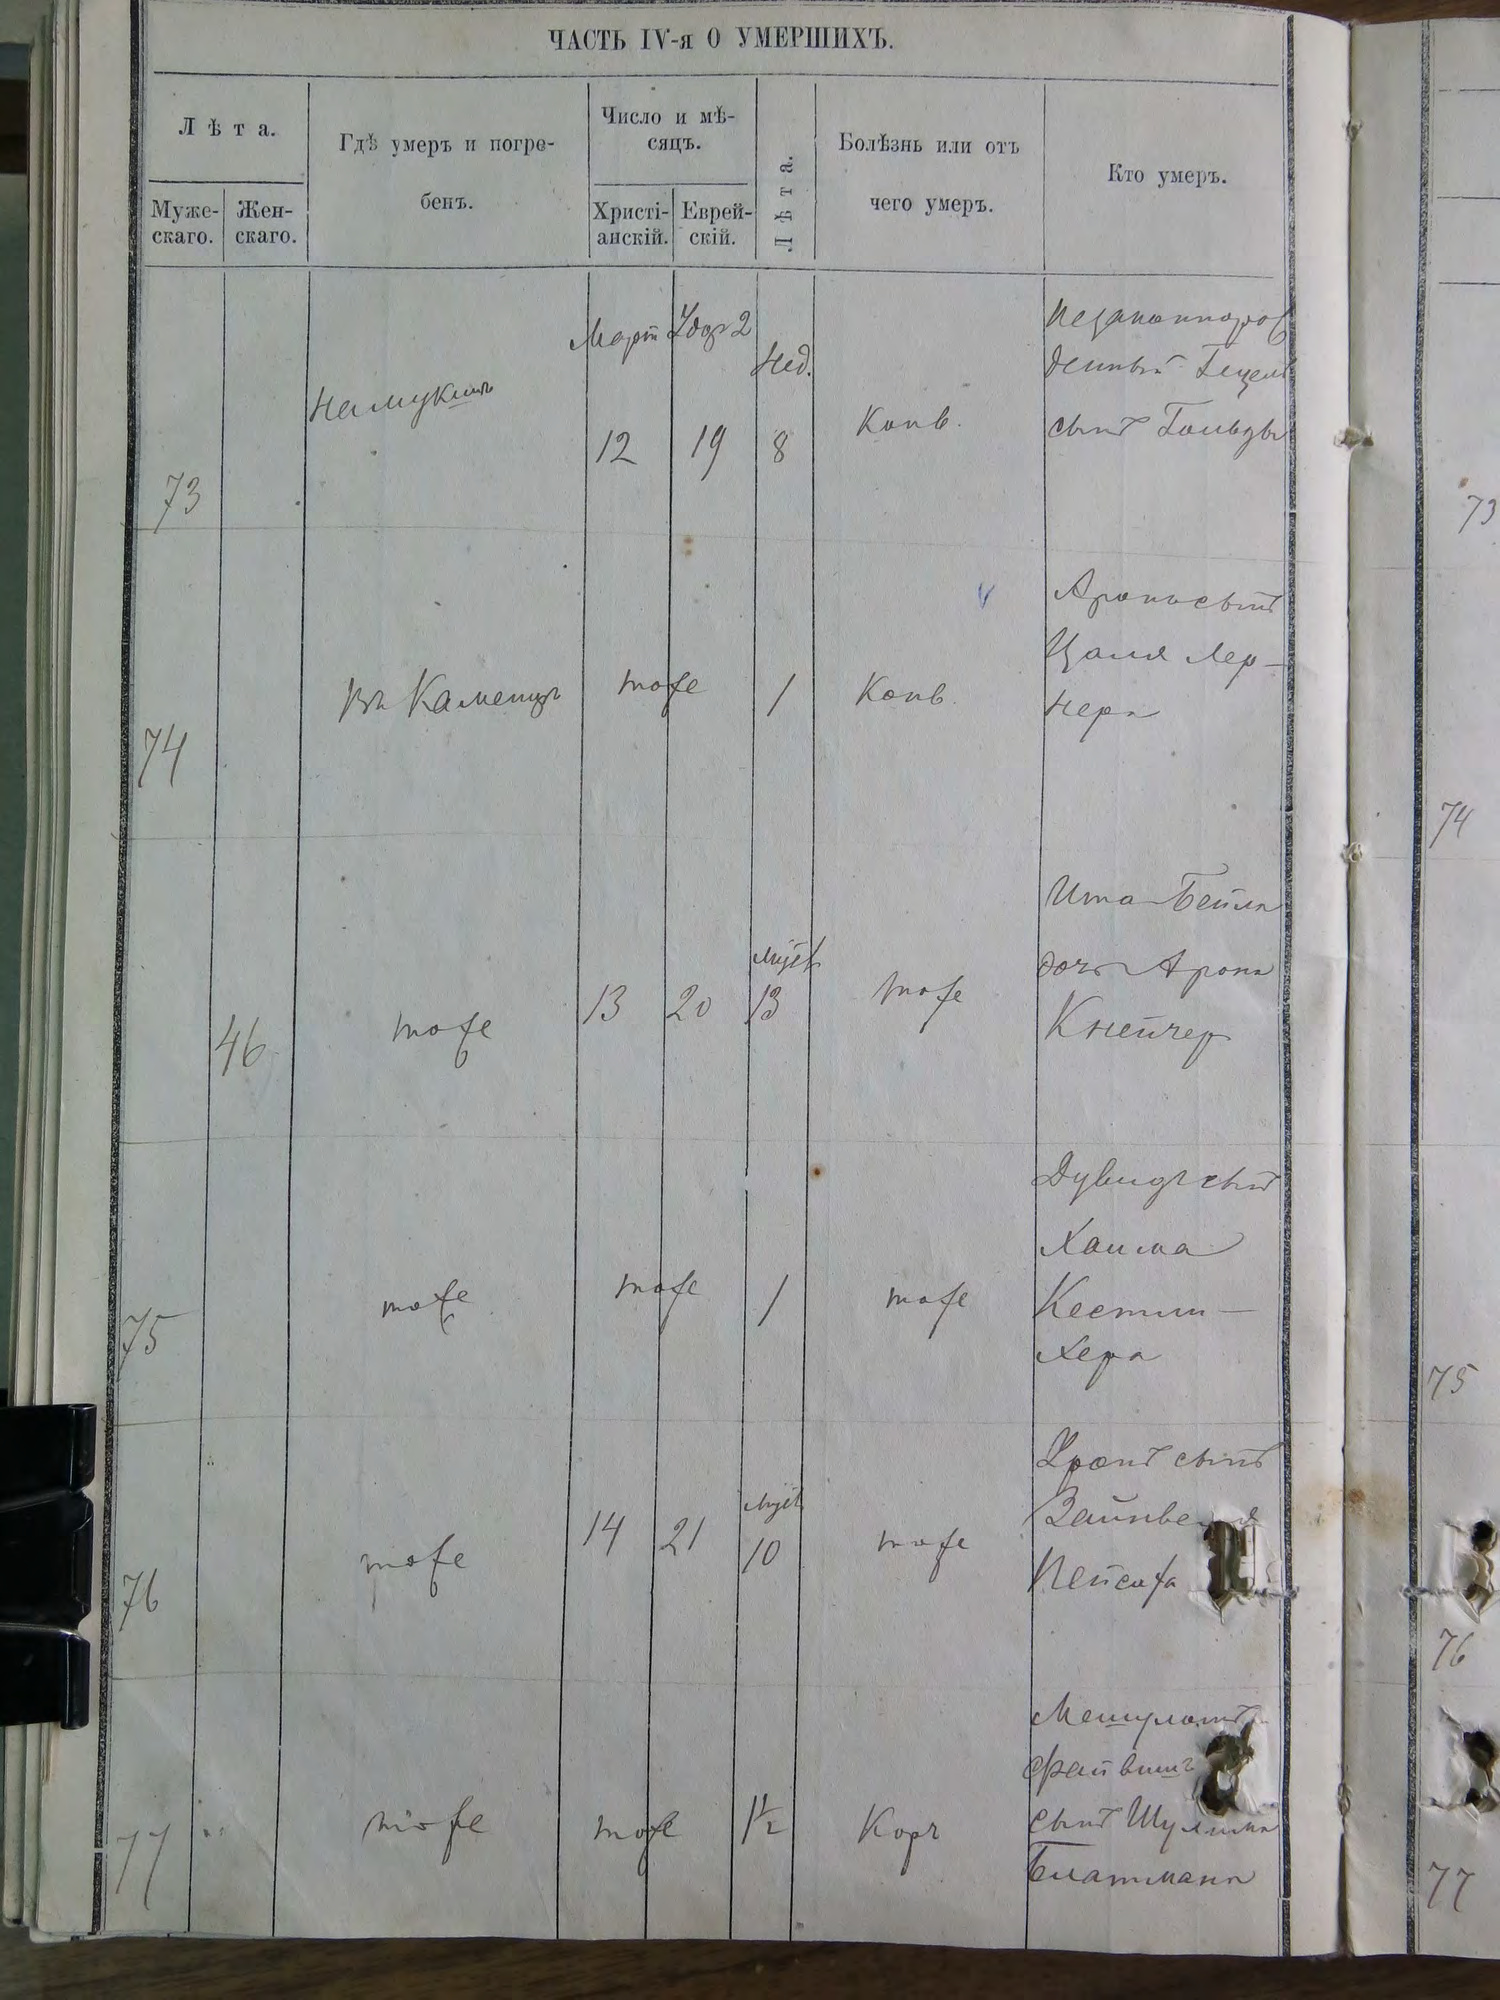 ЧАСТЬ IV-я О УМЕРШИХЪ.
Лѣта.
Муже-
скаго.
Жен-
скаго.
Гдѣ умеръ и погре-
бенъ.
Число и мѣ-
сяцъ.
Христі-
анскій.
Еврей-
скій.
Лѣта.
Болѣзнь или отъ
чего умеръ.
Кто умеръ.
73
Март
12
19
Нед.
8
Конв.
Незаконнорож
денный Гецель
сынъ Гольды
73
74
въ Каменцѣ
тоже
1
Конв.
Аронъ сынъ
Цаля Лер-
нера
74
46
тоже
13
20
13
тоже
Ита Бейла
дочь Арона
Кнейчер
75
тоже
тоже
1
тоже
Дувидъ сынъ
Хаима
Кестли-
хера
75
76
тоже
14
21
10
тоже
сынъ
Пейсаха
76
77
тоже
тоже
1½
Корч
Мешуламъ
Файвишъ
сынъ Шулима
Блатмана
77